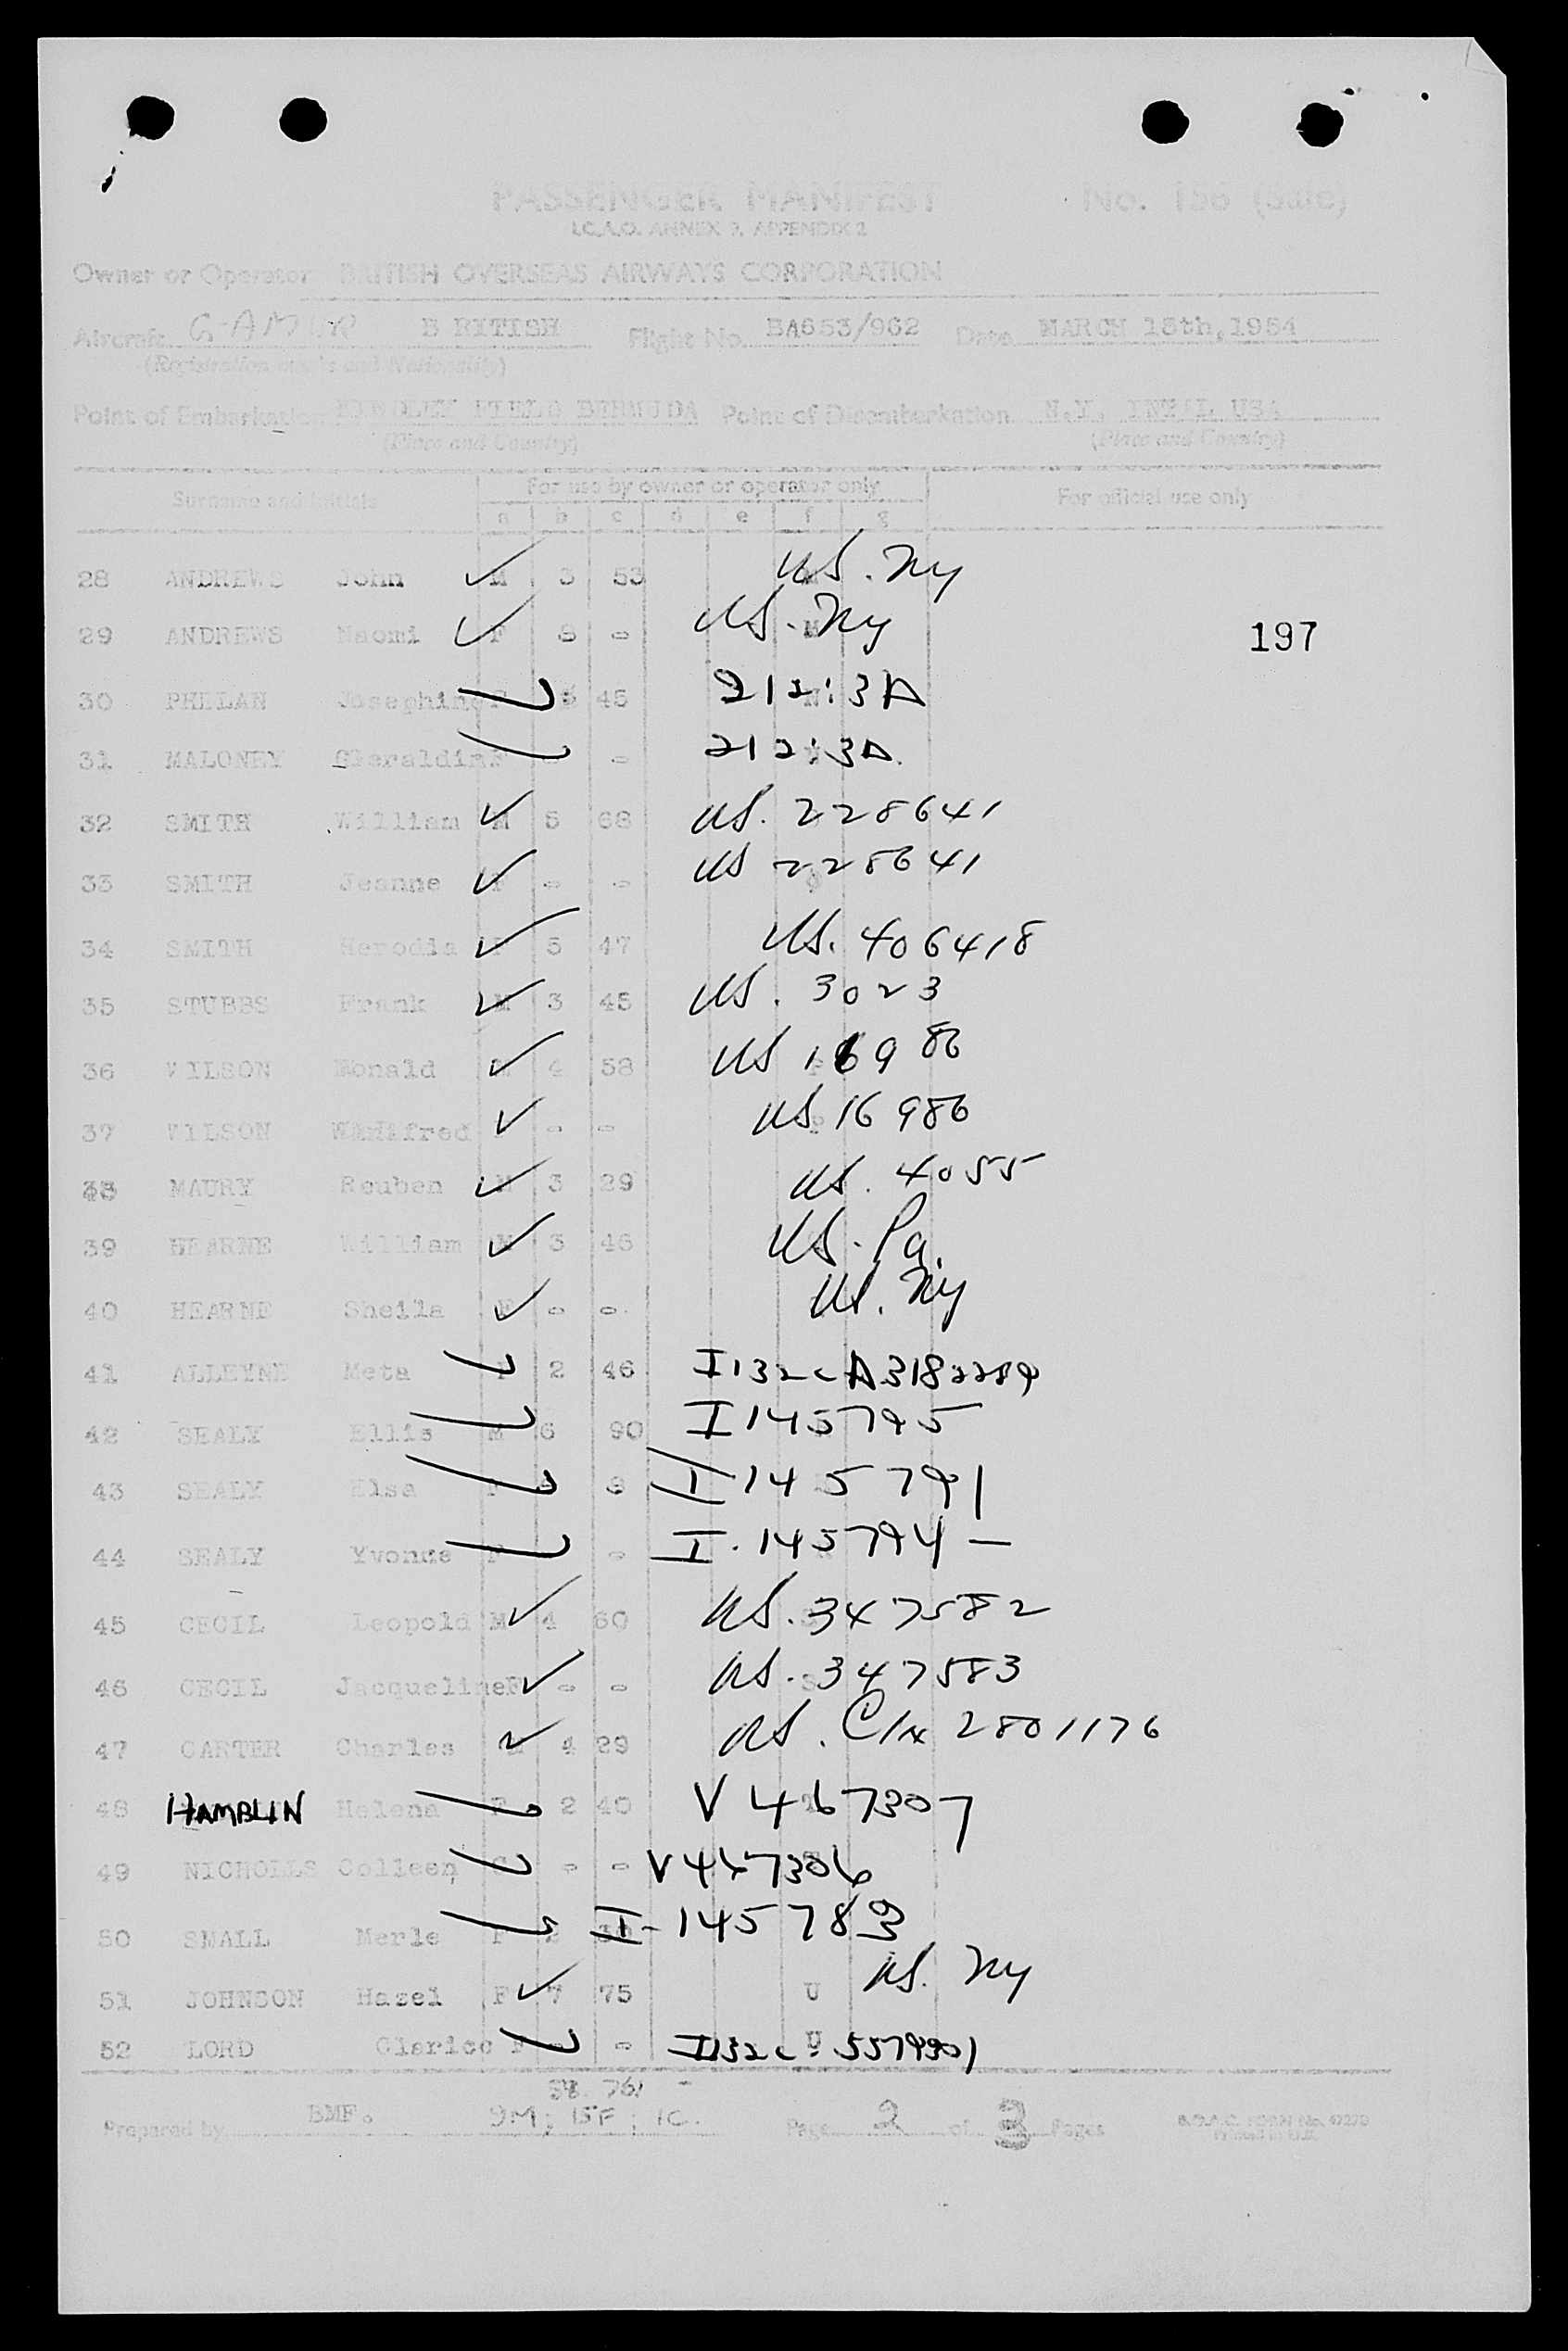 PASSENGER MANIFEST No. 156 (Sale)
I.C.A.O. ANNEX 9, APPENDIX 2
Owner or Operator BRITISH OVERSEAS AIRWAYS CORPORATION
Aircraft B RITISH Flight No. BA653/962 Date MARCH 15th, 1954
(Registration marks and Nationality)
Point of Embarkation KINDLEY FIELD BERMUDA Point of Disembarkation N.Y. INT'L USA
(Place and Country) (Place and Country)
Surname and Initials For use by owner or operator only For official use only
a b c d e f g
28 ANDREWS John M 3 53 US. Ny
29 ANDREWS Naomi F - - US. Ny
197
30 PHELAN Josephine 45 212:3A
31 MALONEY Gleraldin F - 212:3A.
32 SMITH William M 5 68 US. 228641
33 SMITH Jeanne F - - US 228641
34 SMITH Herodia F 5 47 US. 406418
35 STUBBS Frank M 3 45 US. 3023
36 WILSON Ronald M 4 58 US 16986
37 WILSON fred - - US 16986
38 MAURY Reuben M 3 29 US. 4055
39 HEARNE William M 3 46 US. Pa.
40 HEARNE Sheila F - - US. Ny
41 ALLEYNE Meta F 2 46 I132c A3182289
42 SEALY Ellis M 6 90 I 145795
43 SEALY Elsa F - I 145791
44 SEALY Yvonne F - I. 145794 -
45 CECIL Leopold M 4 60 US. 347582
46 CECIL Jacqueline F - - US. 347583
47 CARTER Charles M 4 29 US. C/N 2801176
48 HAMBLIN Helena F 2 40 V 467307
49 NICHOLLS Colleen - - V467306
50 SMALL Merle F 2 I-145783
51 JOHNSON Hazel F 7 75 U US. Ny
52 LORD Clarice F - U I132c: 5579901
Prepared by BMF. 9M; 15F; 1C. Page 2 of 3 Pages